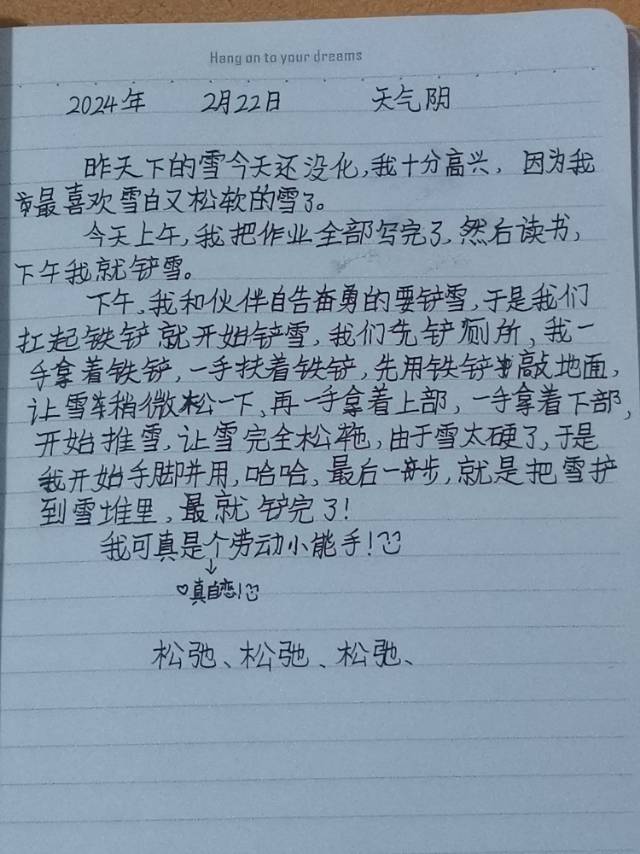 Hang on to your dreams
2024年 2月22日 天气阴
昨天下的雪今天还没化,我十分高兴, 因为我
最喜欢雪白又松软的雪了。
今天上午,我把作业全部写完了,然后读书,
下午我就铲雪。
下午,我和伙伴自告奋勇的要铲雪,于是我们
扛起铁铲就开始铲雪,我们先铲厕所,我一
手拿着铁铲,一手扶着铁铲,先用铁铲敲地面,
让雪稍微松一下、再一手拿着上部,一手拿着下部,
开始推雪,让雪完全松,由于雪太硬了,于是
我开始手脚并用,哈哈,最后一步,就是把雪铲
到雪堆里,最就铲完了!
我可真是个劳动小能手!
↓
♡真自恋!
松弛、松弛、松弛、